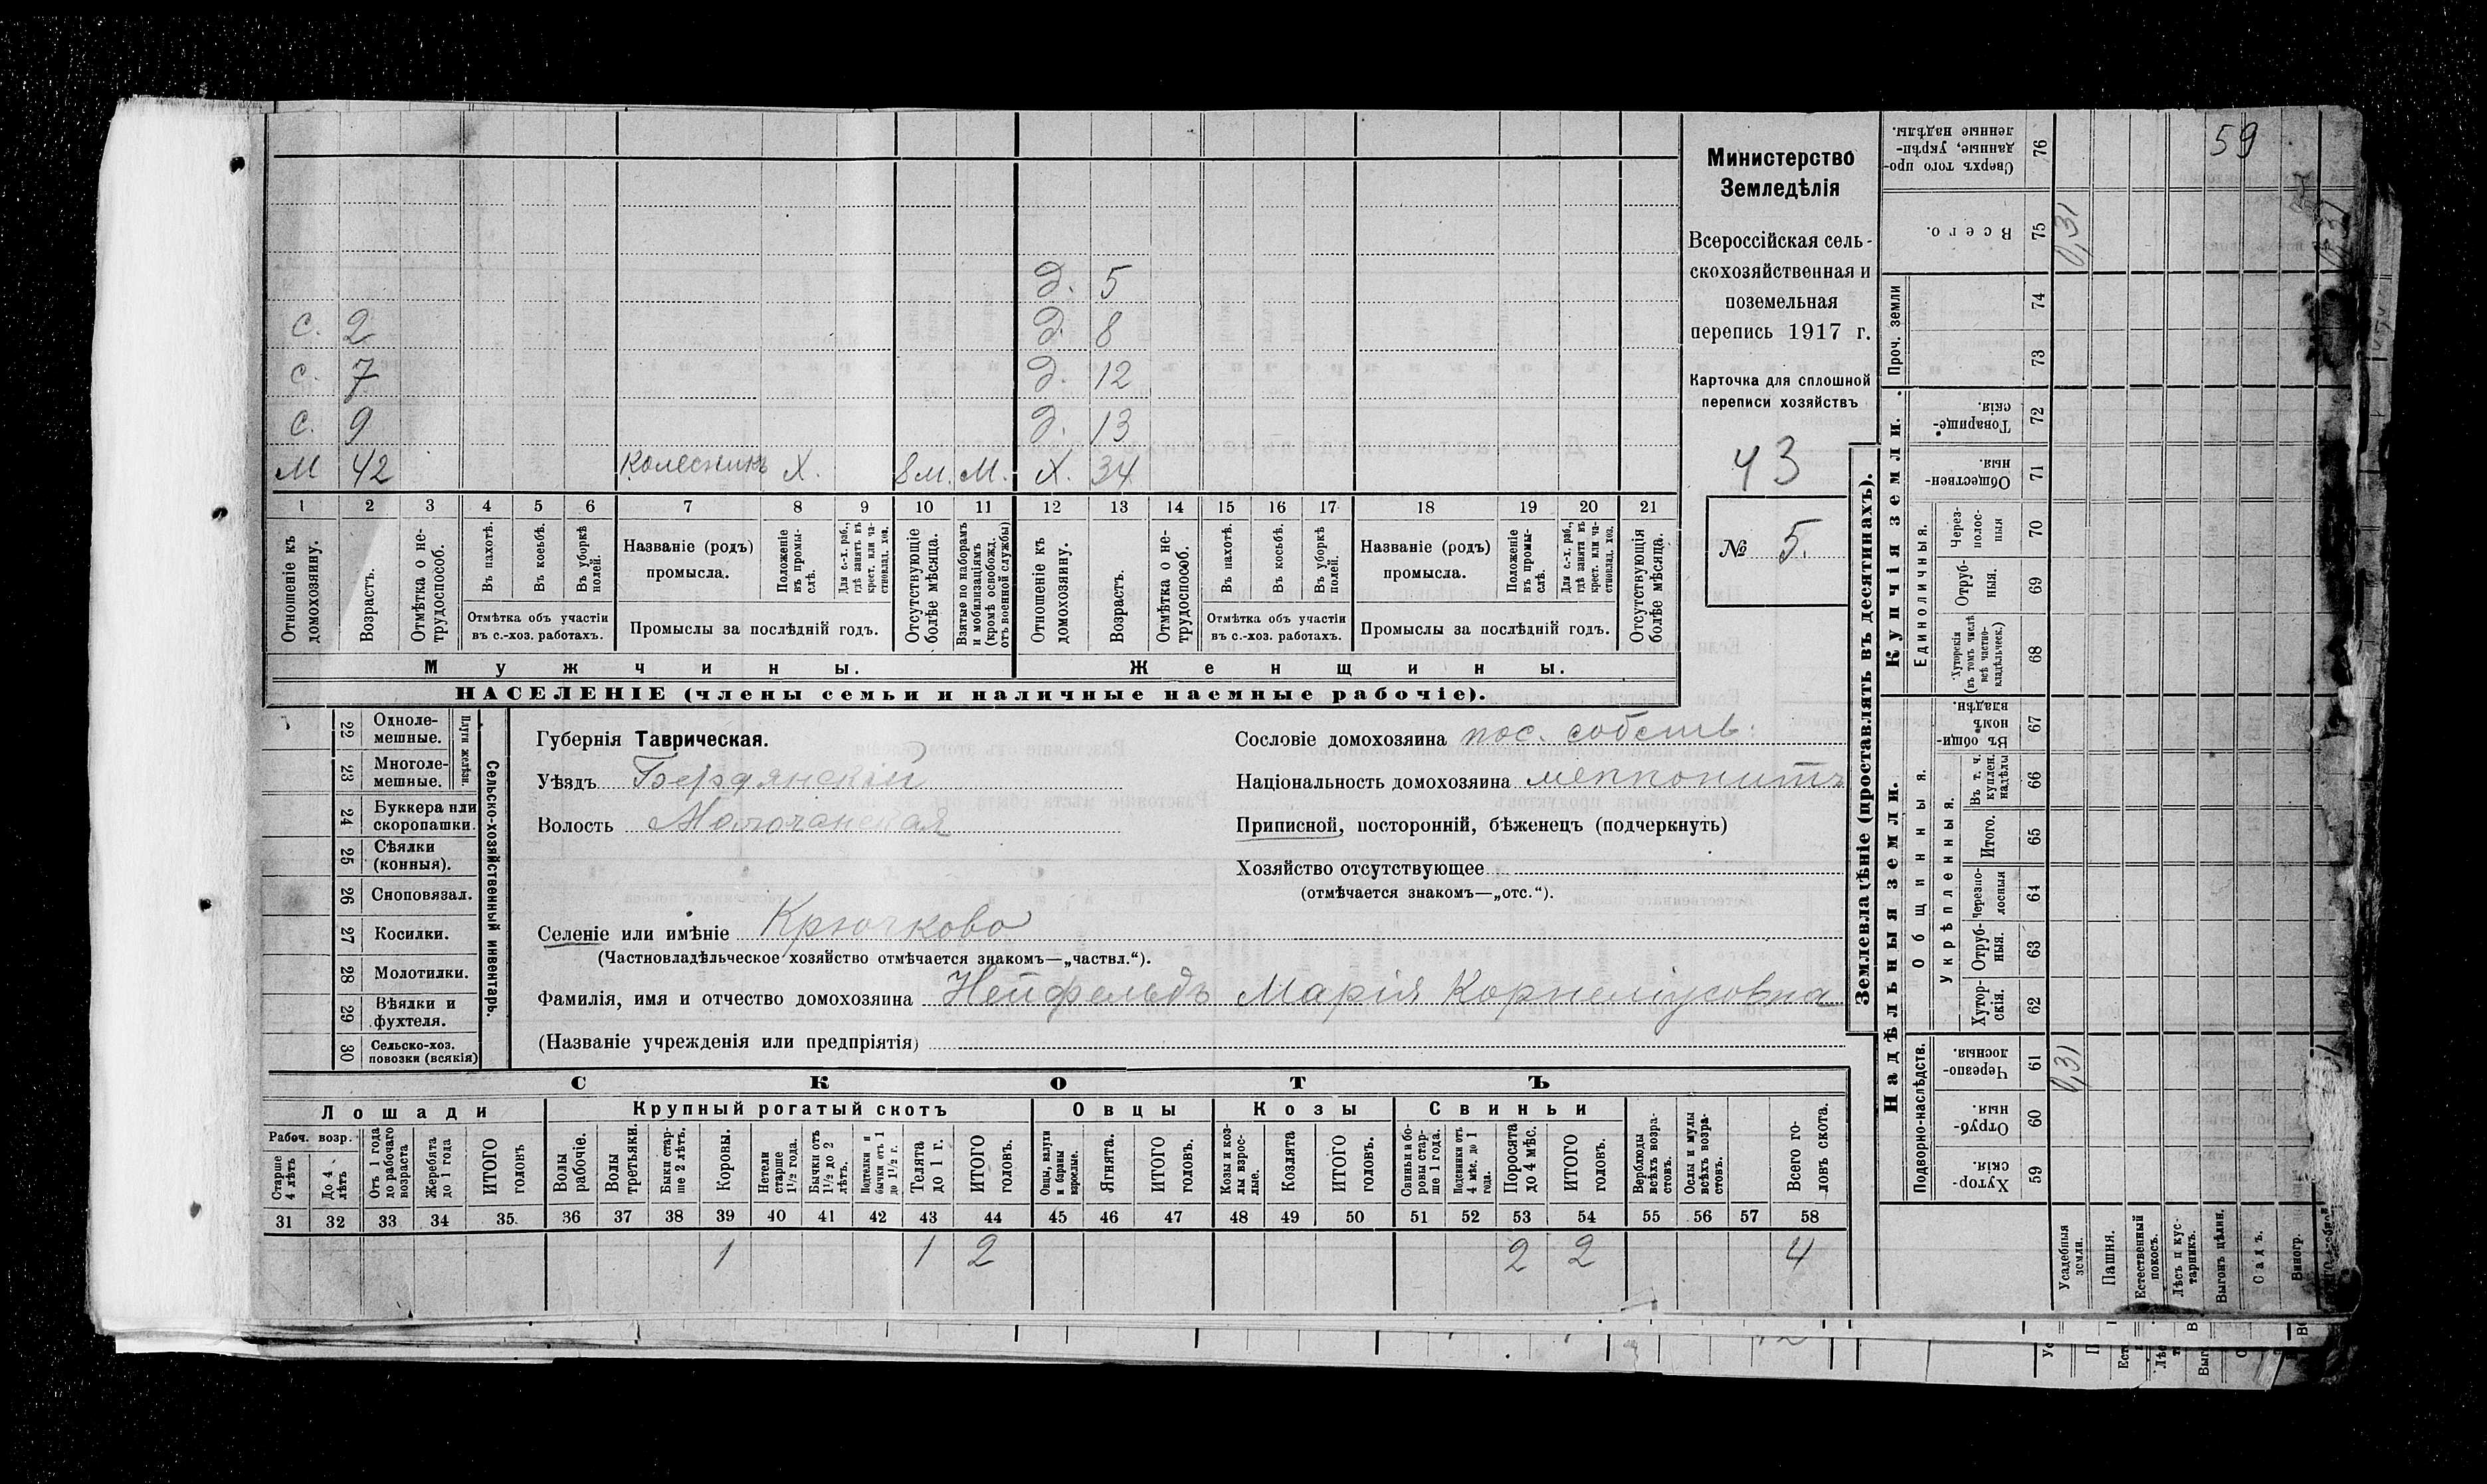 59
Министерство
Земледѣлія
Всероссійская сель-
скохозяйственная и
поземельная
перепись 1917 г.
Карточка для сплошной
переписи хозяйствъ
43
№ 5.
д. 5
с. 2 д. 8
с. 7 д. 12
с. 9 д. 13
М 42 Колесникъ Х. 8 м. М. Х. 34
1 2 3 4 5 6 7 8 9 10 11 12 13 14 15 16 17 18 19 20 21
Отношеніе къ домохозяину.
Возрастъ.
Отмѣтка о не-трудоспособ.
Въ пахотѣ.
Въ косьбѣ.
Въ уборкѣ полей.
Отмѣтка объ участіи
въ с.-хоз. работахъ.
Названіе (родъ)
промысла.
Положеніе въ промы-слѣ.
Для с.-х. раб., гдѣ занятъ въ крест. или ча-стновлад. хоз.
Промыслы за послѣдній годъ.
Отсутствующіе болѣе мѣсяца.
Взятые по наборамъ и мобилизаціямъ (кромѣ освобожд. отъ военной службы)
Отношеніе къ домохозяину.
Возрастъ.
Отмѣтка о не-трудоспособ.
Въ пахотѣ.
Въ косьбѣ.
Въ уборкѣ полей.
Отмѣтка объ участіи
въ с.-хоз. работахъ.
Названіе (родъ)
промысла.
Положеніе въ промы-слѣ.
Для с.-х. раб., гдѣ занята въ крест. или ча-стновлад. хоз.
Промыслы за послѣдній годъ.
Отсутствующія болѣе мѣсяца.
Мужчины. Женщины.
НАСЕЛЕНІЕ (члены семьи и наличные наемные рабочіе).
22 Одноле-мешные.
23 Многоле-мешные.
Плуги желѣзн.
24 Буккера или скоропашки.
25 Сѣялки (конныя).
26 Сноповязал.
27 Косилки.
28 Молотилки.
29 Вѣялки и фухтеля.
30 Сельско-хоз. повозки (всякія)
Сельско-хозяйственный инвентарь.
Губернія Таврическая.
Уѣздъ Бердянскій
Волость Молочанская
Сословіе домохозяина пос. собств.
Національность домохозяина меннонитъ
Приписной, посторонній, бѣженецъ (подчеркнуть)
Хозяйство отсутствующее
(отмѣчается знакомъ—„отс.“).
Селеніе или имѣніе Крючково
(Частновладѣльческое хозяйство отмѣчается знакомъ—„частвл.“).
Фамилія, имя и отчество домохозяина Нейфельдъ Марія Корнеліусовна
(Названіе учрежденія или предпріятія)
СКОТЪ
Лошади Крупный рогатый скотъ Овцы Козы Свиньи
Рабоч. возр.
Старше 4 лѣтъ
До 4 лѣтъ
Отъ 1 года до рабочаго возраста
Жеребята до 1 года
ИТОГО головъ
Волы рабочіе.
Волы третьяки.
Быки стар-ше 2 лѣтъ.
Коровы.
Нетели старше 1½ года.
Бычки отъ 1½ до 2 лѣтъ.
Подтелки и бычки отъ 1 до 1½ г.
Телята до 1 г.
ИТОГО головъ.
Овцы, валухи и бараны взрослые.
Ягнята.
ИТОГО головъ.
Козы и коз-лы взрос-лые.
Козлята
ИТОГО головъ.
Свиньи и бо-ровы стар-ше 1 года.
Подсвинки отъ 4 мѣс. до 1 года.
Поросята до 4 мѣс.
ИТОГО головъ.
Верблюды всѣхъ возра-стовъ.
Ослы и мулы всѣхъ возра-стовъ.
Всего го-ловъ скота.
31 32 33 34 35. 36 37 38 39 40 41 42 43 44 45 46 47 48 49 50 51 52 53 54 55 56 57 58
1 1 2 2 2 4
Землевладѣніе (проставлять въ десятинахъ).
Надѣльныя земли.
Купчія земли.
Проч. земли
Подворно-наслѣдств.
Общинныя.
Укрѣпленныя.
Единоличныя.
Хутор-скія. 59
Отруб-ныя. 60
Черезпо-лосныя. 61
Хутор-скія. 62
Отруб-ныя. 63
Черезпо-лосныя 64
Итого. 65
Въ т. ч. куплен. надѣлы 66
Въ общин-номъ владѣн. 67
Хуторскія (въ томъ числѣ всѣ частно-владѣльческ.) 68
Отруб-ныя. 69
Через-полос-ныя 70
Обществен-ныя. 71
Товарище-скія. 72
73
74
Всего. 75
Сверхъ того про-данные, укрѣп-ленные надѣлы. 76
0,31
0,31
Усадебныя земли.
Пашня.
Естественный покосъ.
Лѣсъ и кус-тарникъ.
Выгонъ цѣлин.
Садъ.
Виногр.